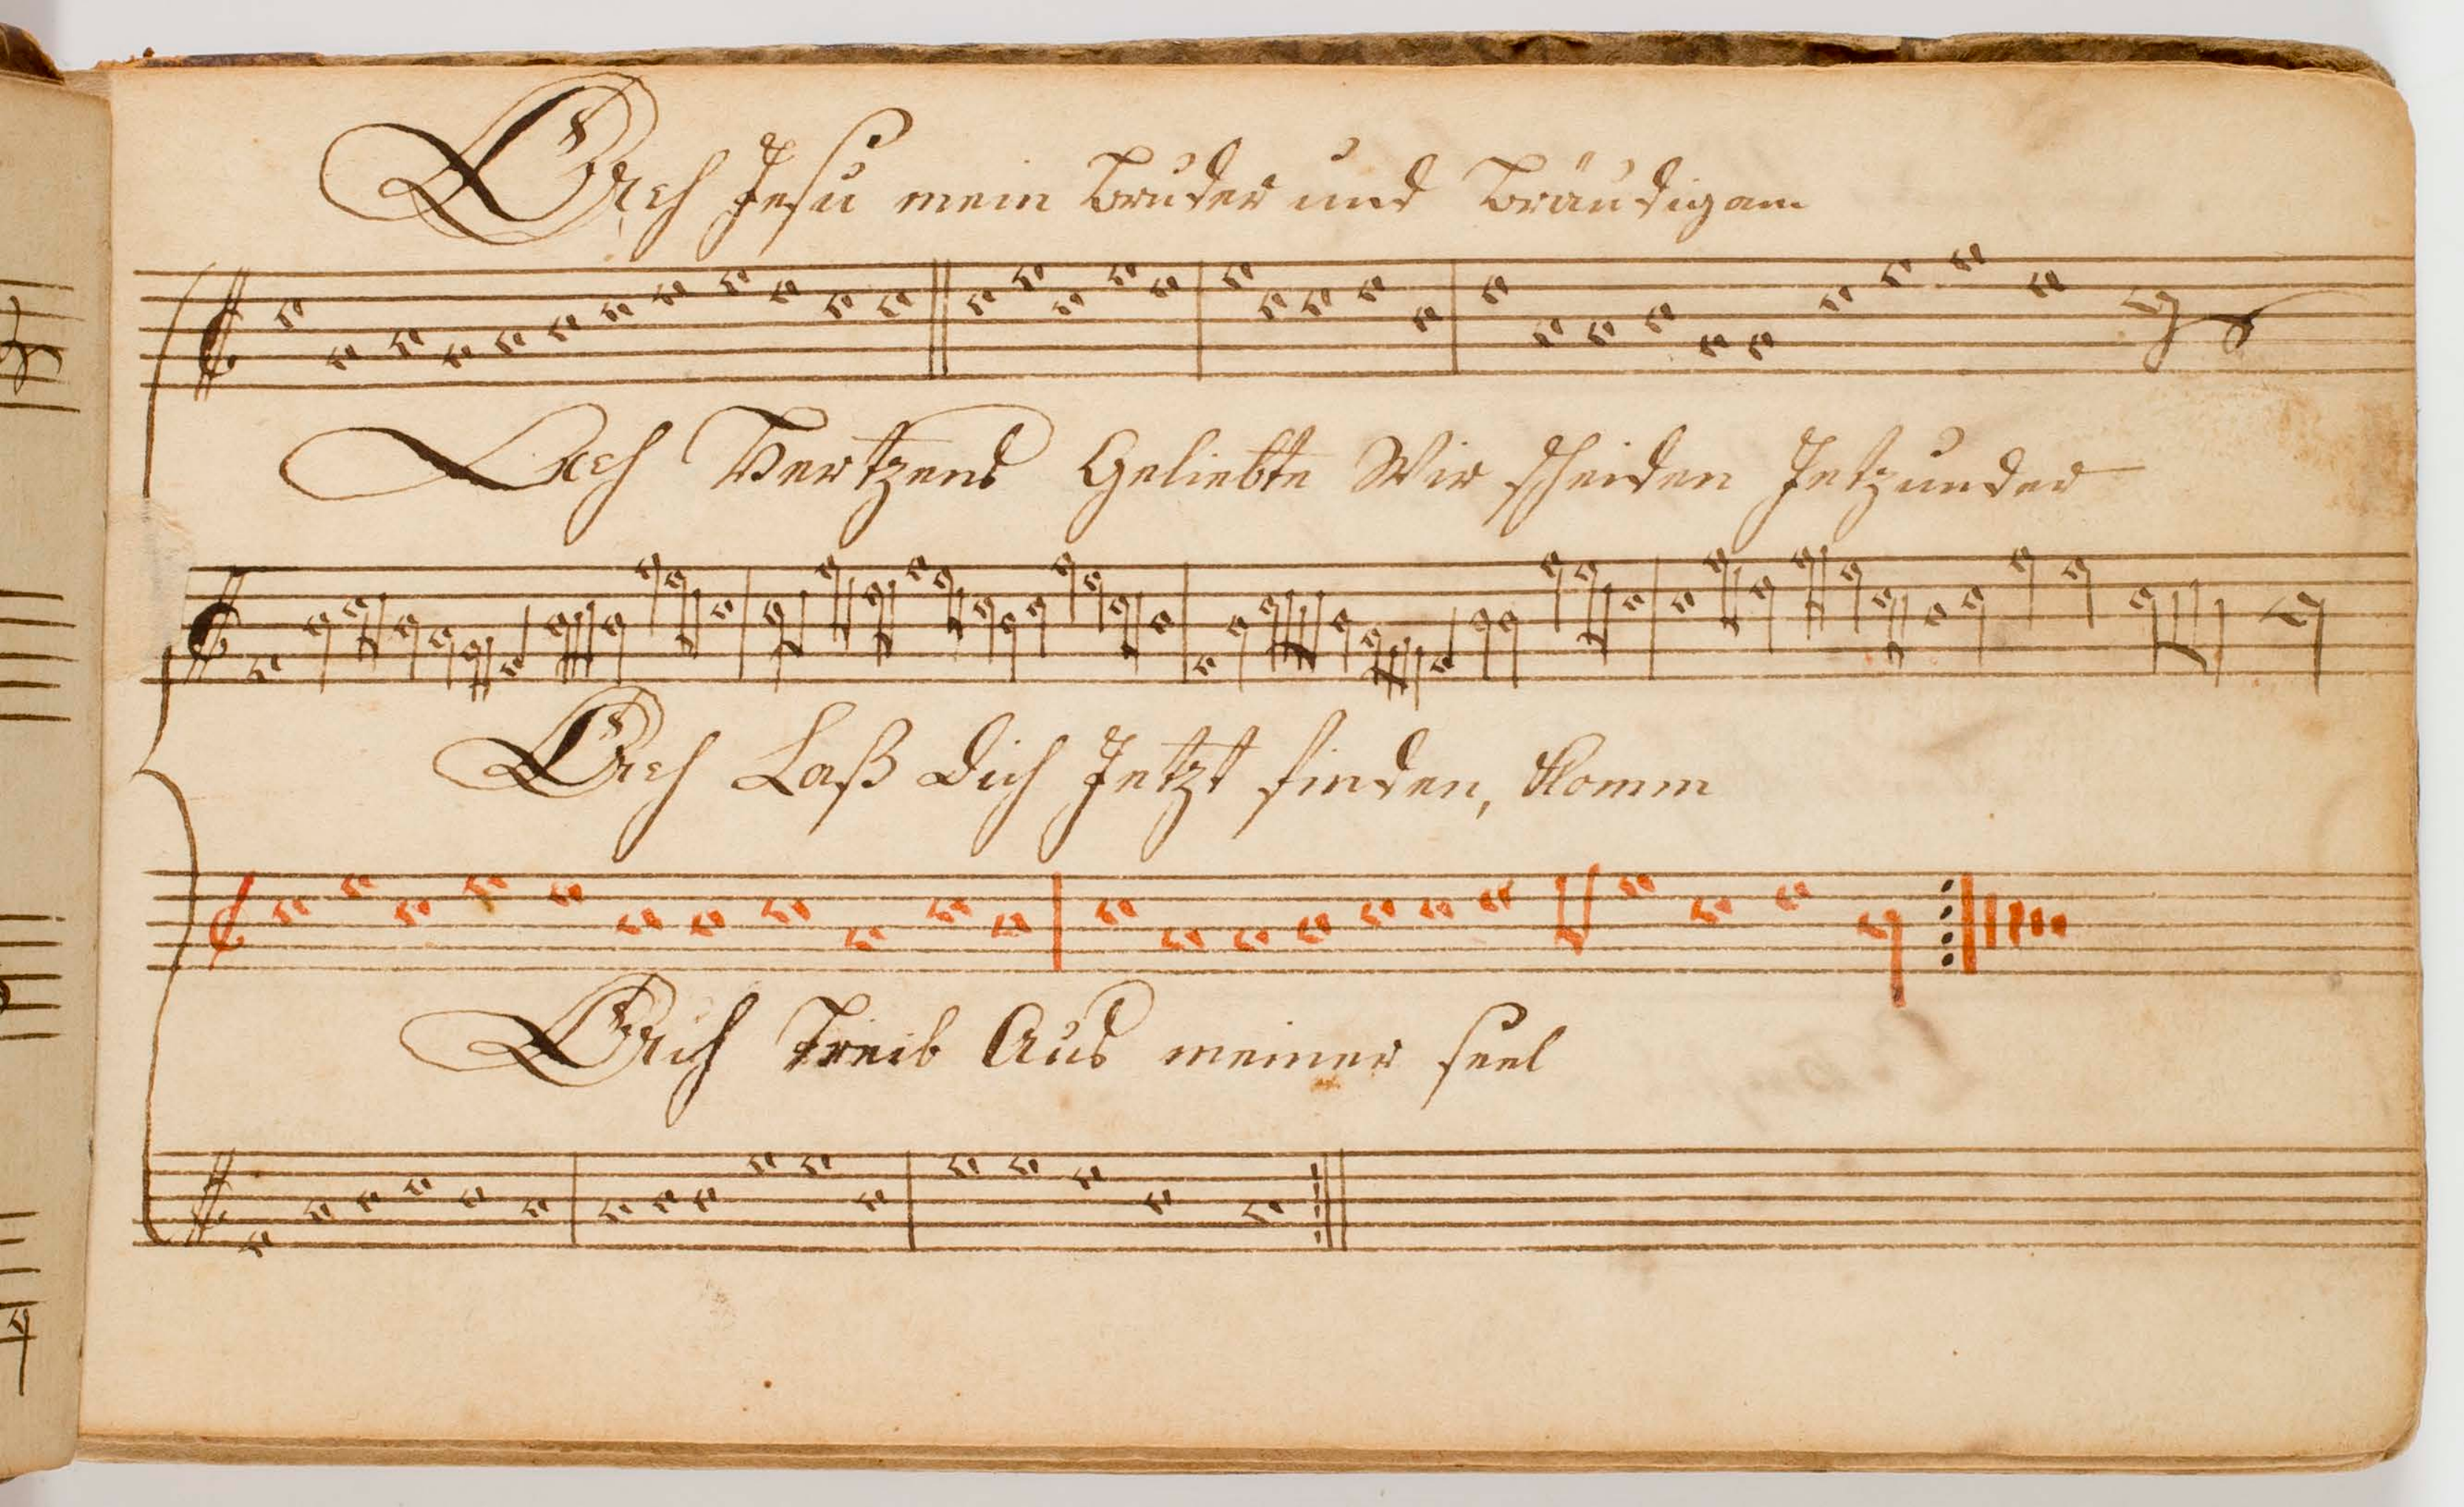 Ach Jesu mein Bruder und Bräudigam
Ach Hertzens Geliebte Wir scheiden Jetzunder
Ach Laß dich Jetzt finden, Komm
Ach Treib Aus meiner seel